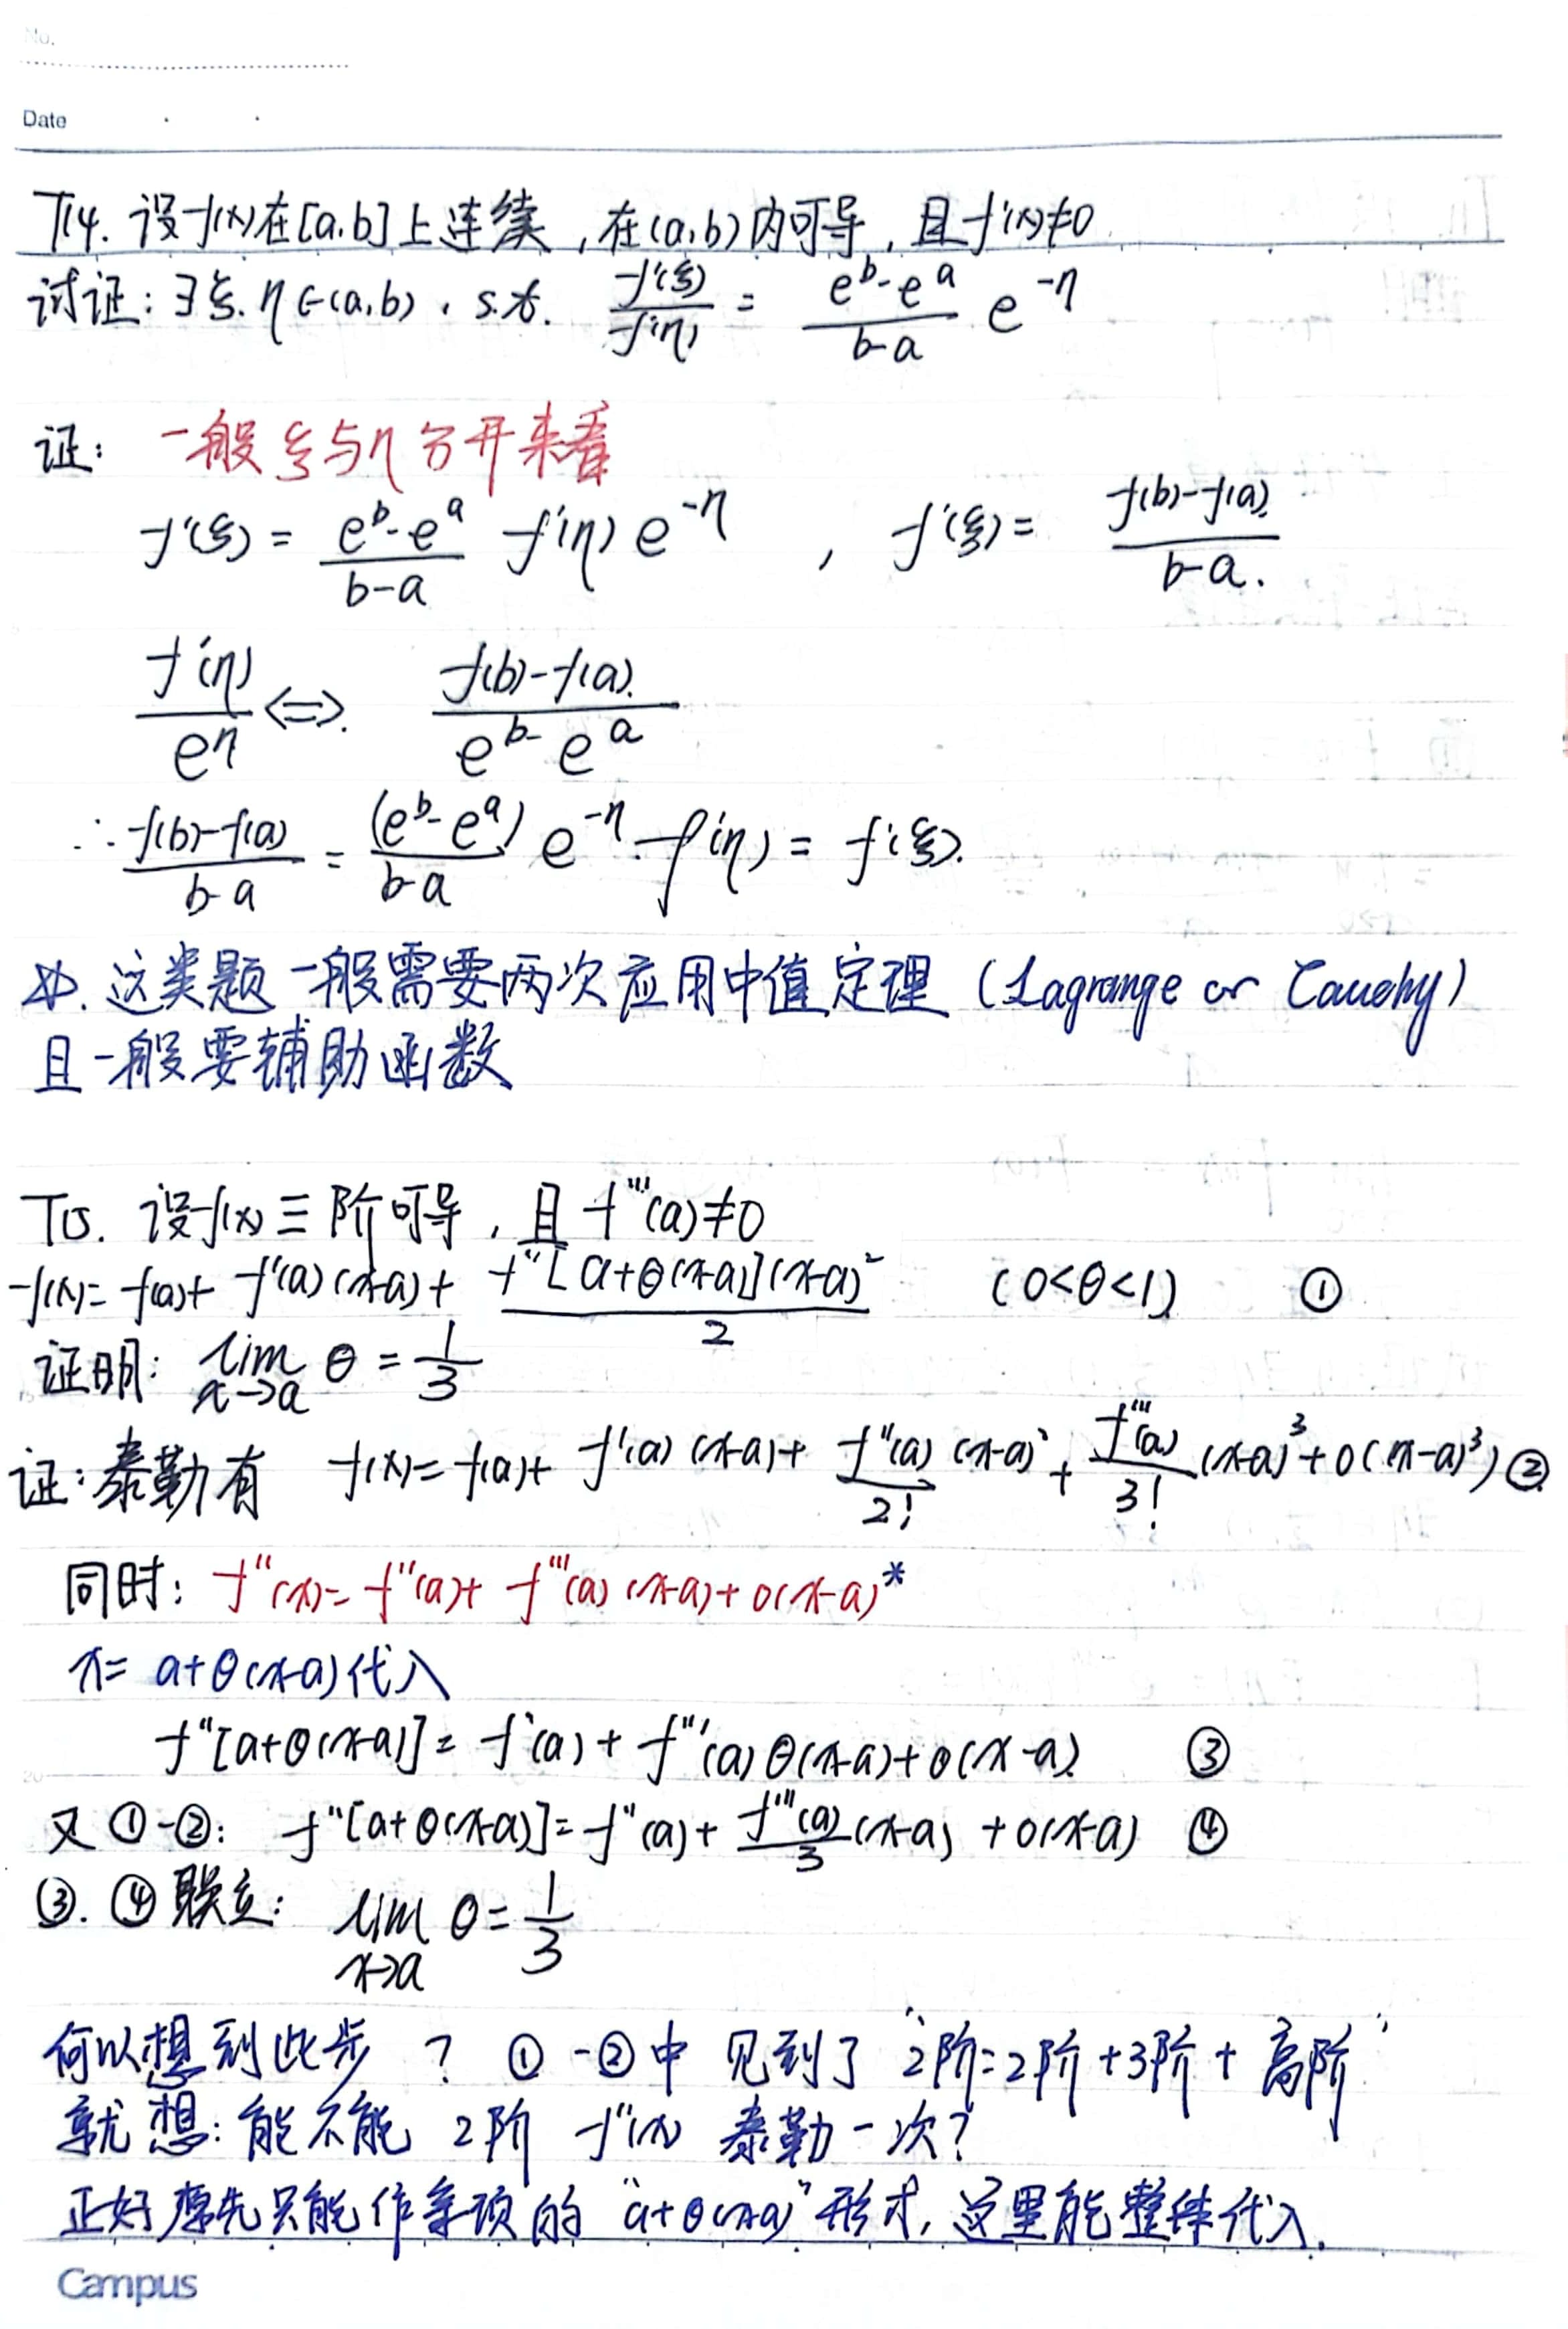 No.
Date
T14. 设f(x)在[a,b]上连续,在(a,b)内可导,且f'(x)≠0
试证:∃ξ.η∈(a,b),s.t. f'(ξ)/f'(η) = (e^b-e^a)/(b-a) e^-η
证: 一般ξ与η分开来看
f'(ξ) = (e^b-e^a)/(b-a) f'(η) e^-η , f'(ξ) = (f(b)-f(a))/(b-a).
f'(η)/e^η <=> (f(b)-f(a))/(e^b-e^a)
∴ (f(b)-f(a))/(b-a) = (e^b-e^a)/(b-a) e^-η·f'(η) = f'(ξ).
这类题一般需要两次应用中值定理 (Lagrange or Cauchy)
且一般要辅助函数
T15. 设f(x)三阶可导,且f'''(a)≠0
f(x)=f(a)+f'(a)(x-a)+f''[a+θ(x-a)](x-a)²/2 (0<θ<1) ①
证明: lim x→a θ = 1/3
证:泰勒有 f(x)=f(a)+f'(a)(x-a)+f''(a)/2!(x-a)²+f'''(a)/3!(x-a)³+o((x-a)³) ②
同时: f''(x)=f''(a)+f'''(a)(x-a)+o(x-a)*
x=a+θ(x-a)代入
f''[a+θ(x-a)]=f''(a)+f'''(a)θ(x-a)+o(x-a) ③
又①-②: f''[a+θ(x-a)]=f''(a)+f'''(a)/3(x-a)+o(x-a) ④
③.④联立: lim x→a θ=1/3
何以想到此步 ? ①-②中 见到了 "2阶=2阶+3阶+高阶"
就想:能不能 2阶 f''(x) 泰勒一次?
正好原先只能作余项的 "a+θ(x-a)" 形式,这里能整体代入.
Campus